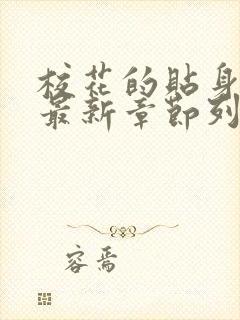 校花的贴身
最新章节列
容焉